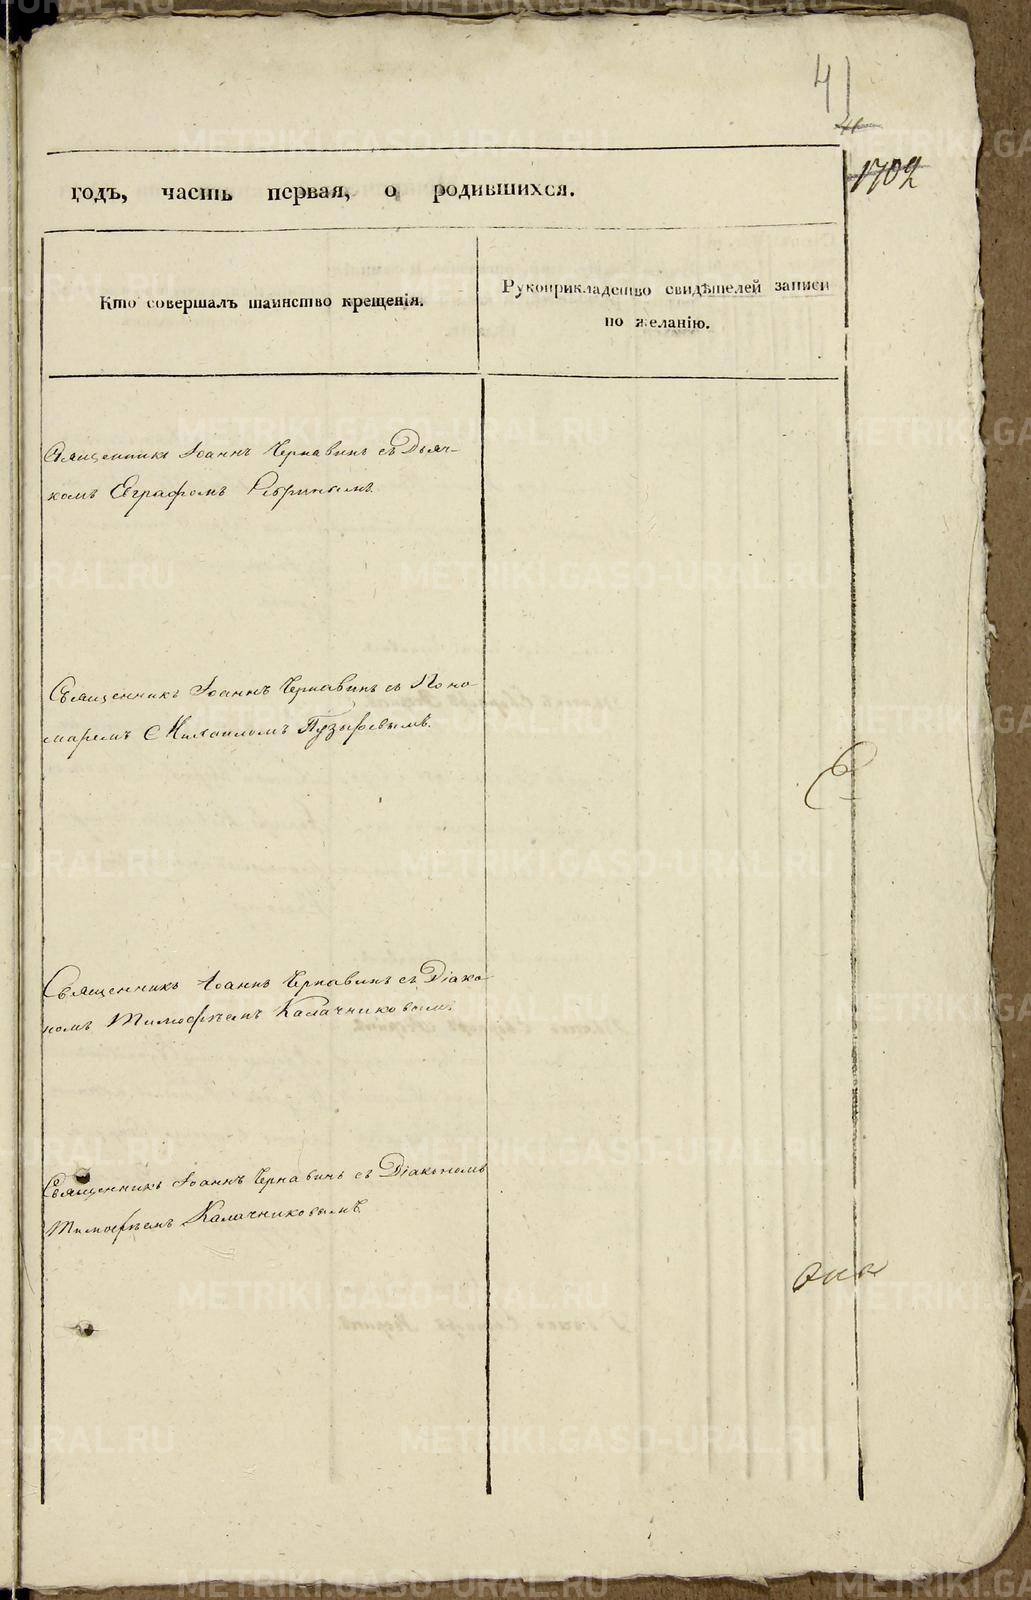 41
1702
годъ, часть первая, о родившихся.
Кто совершалъ таинство крещенія.
Рукоприкладство свидѣтелей записи
по желанію.
Священникъ Іоаннъ Чернавинъ съ Дьяч-
комъ Евграфомъ
Священникъ Іоаннъ Чернавинъ съ Поно-
маремъ Михаиломъ Пузыревымъ.
Священникъ Іоаннъ Чернавинъ съ Діако-
номъ Тимофѣемъ Калачниковымъ.
Священникъ Іоаннъ Чернавинъ съ Діакономъ
Тимофѣемъ Калачниковымъ
METRIKI.GASO-URAL.RU